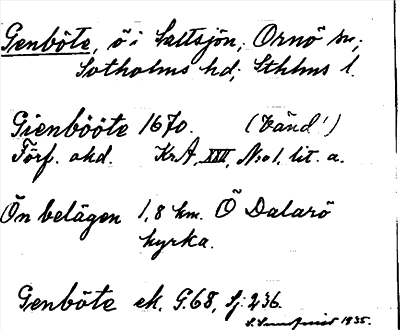 Genböte, ö i Saltsjön, Ornö sn;
Sotholms hd; Sthlms l.
Gienbööte 1670. (Vänd!)
Förf. okd. KrA, XXV, No 1, lit. a.
Ön belägen 1,8 km. Ö Dalarö
kyrka.
Genböte ek. G.68, Sj. 236.
1935.